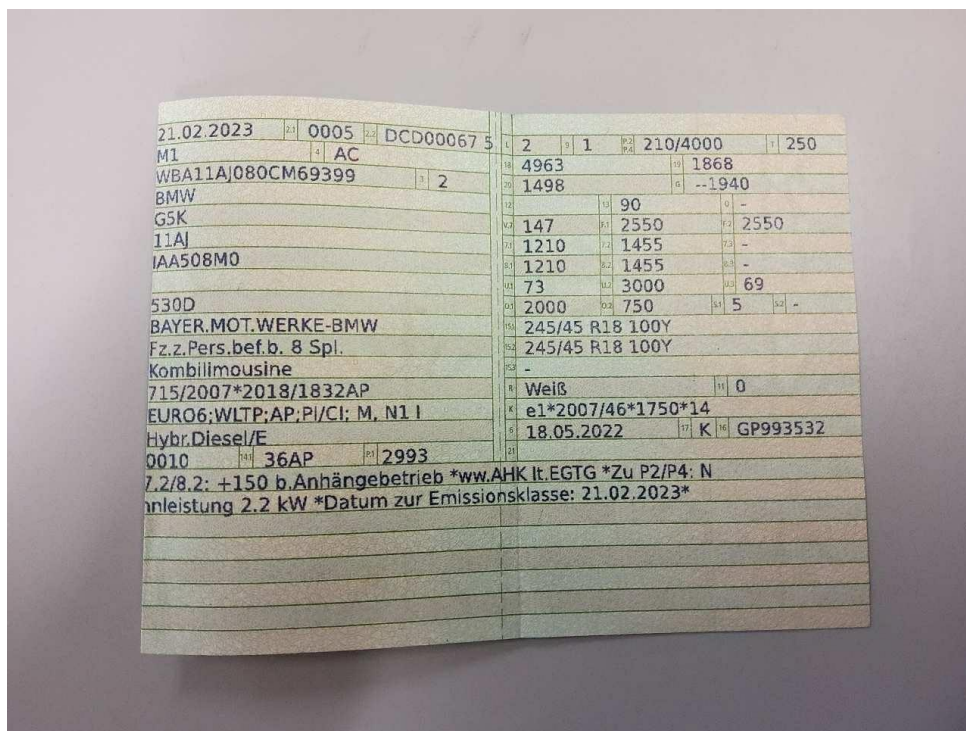 21.02.2023 2.1 0005 2.2 DCD00067 5
M1 4 AC
WBA11AJ080CM69399 3 2
BMW
G5K
11AJ
IAA508M0
530D
BAYER.MOT.WERKE-BMW
Fz.z.Pers.bef.b. 8 Spl.
Kombilimousine
715/2007*2018/1832AP
EURO6;WLTP;AP;PI/CI; M, N1 I
Hybr.Diesel/E
0010 14.1 36AP P.1 2993
L 2 9 1 P.2 P.4 210/4000 T 250
18 4963 19 1868
20 1498 G --1940
12 13 90 Q -
V.7 147 F.1 2550 F.2 2550
7.1 1210 7.2 1455 7.3 -
8.1 1210 8.2 1455 8.3 -
U.1 73 U.2 3000 U.3 69
O.1 2000 O.2 750 S.1 5 S.2 -
15.1 245/45 R18 100Y
15.2 245/45 R18 100Y
15.3 -
R Weiß 11 0
K e1*2007/46*1750*14
6 18.05.2022 17 K 16 GP993532
21
7.2/8.2: +150 b.Anhängebetrieb *ww.AHK lt.EGTG *Zu P2/P4: N
nnleistung 2.2 kW *Datum zur Emissionsklasse: 21.02.2023*